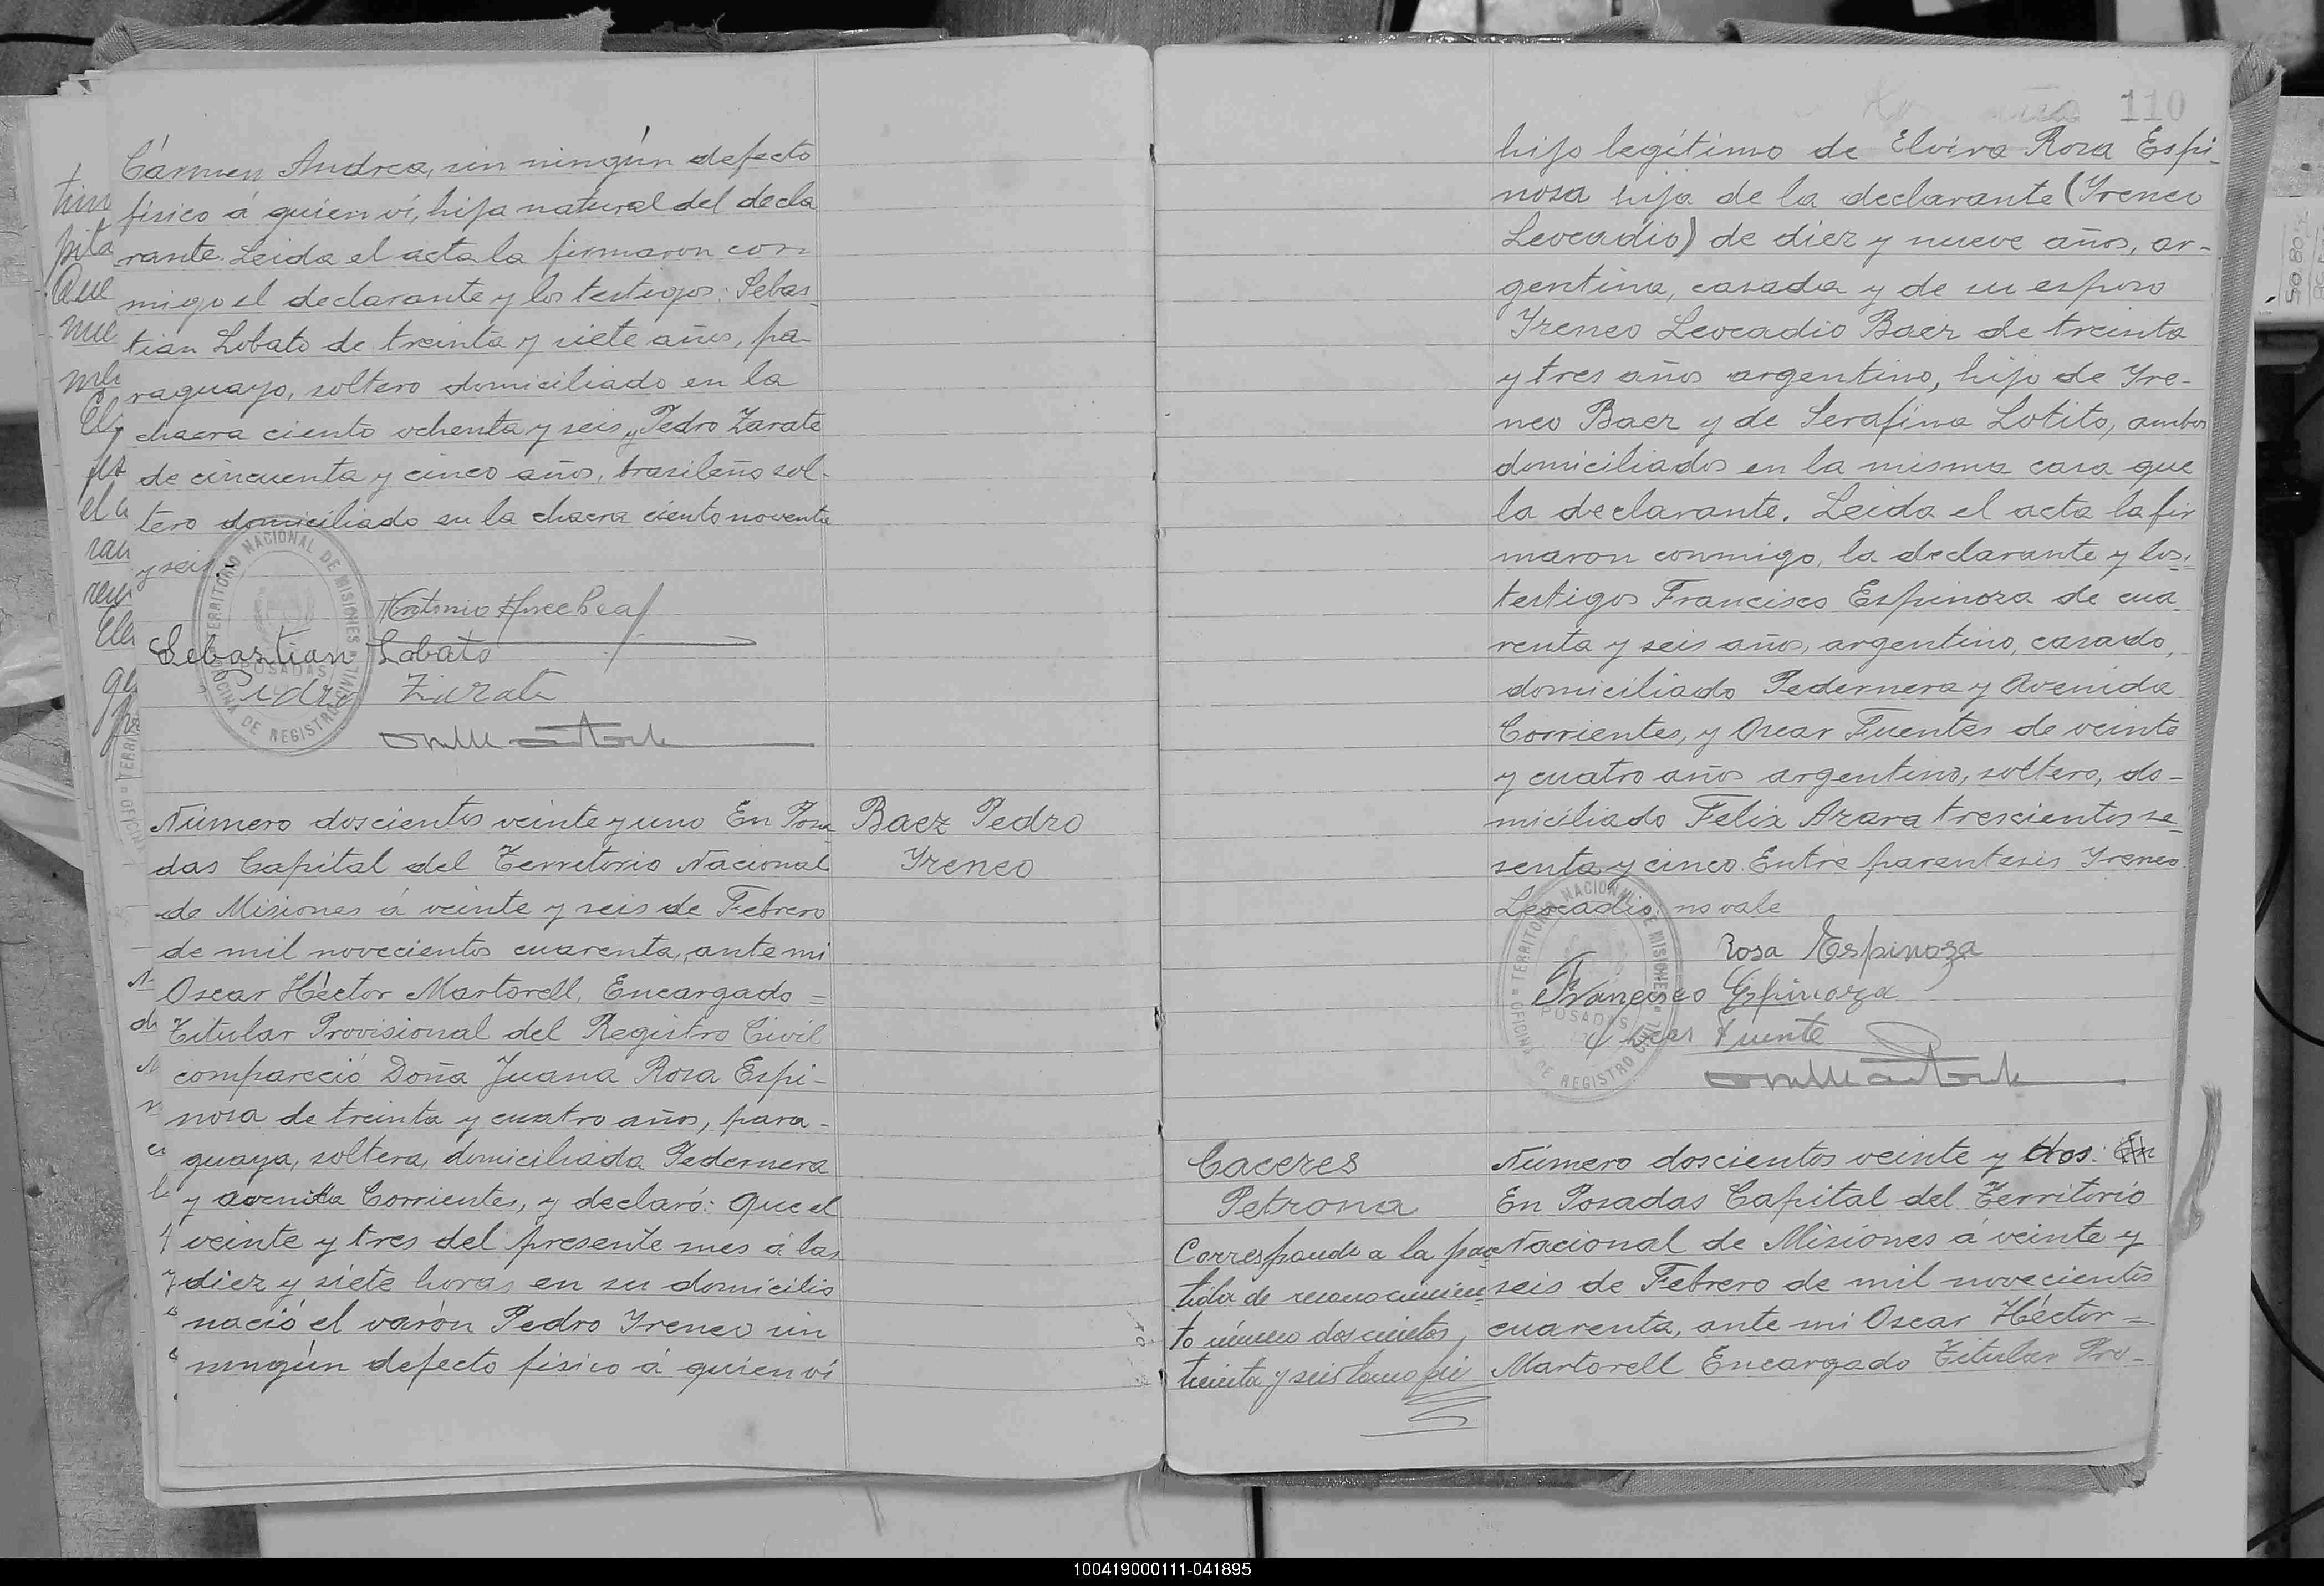 Cármen Andrea, sin ningún defecto
físico á quien ví, hija natural del decla
rante. Leida el acta la firmaron con
migo el declarante y los testigos: Sebas_
tian Lobato de treinta y siete años, pa_
raguayo, soltero domiciliado en la
chacra ciento ochenta y seis y Pedro Zarate
de cincuenta y cinco años, brasileño sol-
tero domiciliado en la chacra ciento noventa
y seis.
Antonio
Sebastian Lobato
Pedro Zarate
TERRITORIO NACIONAL DE MISIONES
POSADAS
OFICINA DE REGISTRO CIVIL
Número doscientos veinte y uno En Posa_
das Capital del Territorio Nacional
de Misiones á veinte y seis de Febrero
de mil novecientos cuarenta, ante mi
Oscar Héctor Martorell, Encargado =
Titular Provisional del Registro Civil
compareció Doña Juana Rosa Espi-
nosa de treinta y cuatro años, para-
guaya, soltera, domiciliada Pedernera
y avenida Corrientes, y declaró: Que el
veinte y tres del presente mes á las
diez y siete horas en su domicilio
nació el varón Pedro Yreneo sin
ningún defecto físico á quien ví
Baez Pedro
Yreneo
110
hijo legítimo de Elvira Rosa Espi_
nosa hija de la declarante (Yreneo
Leocadio) de diez y nueve años, ar-
gentina, casada y de su esposo
Yreneo Leocadio Baez de treinta
y tres años argentino, hijo de Yre-
neo Baez y de Serafina Lotito, ambos
domiciliados en la misma casa que
la declarante. Leida el acta la fir
maron conmigo, la declarante y los
testigos Francisco Espinosa de cua_
renta y seis años, argentino, casado,
domiciliado Pedernera y Avenida
Corrientes, y Oscar Fuentes de veinte
y cuatro años argentino, soltero, do-
miciliado Felix Azara trescientos se_
senta y cinco. Entre parentesis Yreneo
Leocadio: no vale
Rosa Espinoza
Francisco Espinoza
Oscar Fuente
TERRITORIO NACIONAL DE MISIONES
POSADAS
OFICINA DE REGISTRO CIVIL
Caceres
Petrona
Corresponde a la par_
tida de reconocimien_
to número doscientos,
treinta y seis
Número doscientos veinte y dos:
En Posadas Capital del Territorio
Nacional de Misiones á veinte y
seis de Febrero de mil novecientos
cuarenta, ante mi Oscar Héctor =
Martorell Encargado Titular Pro-
100419000111-041895